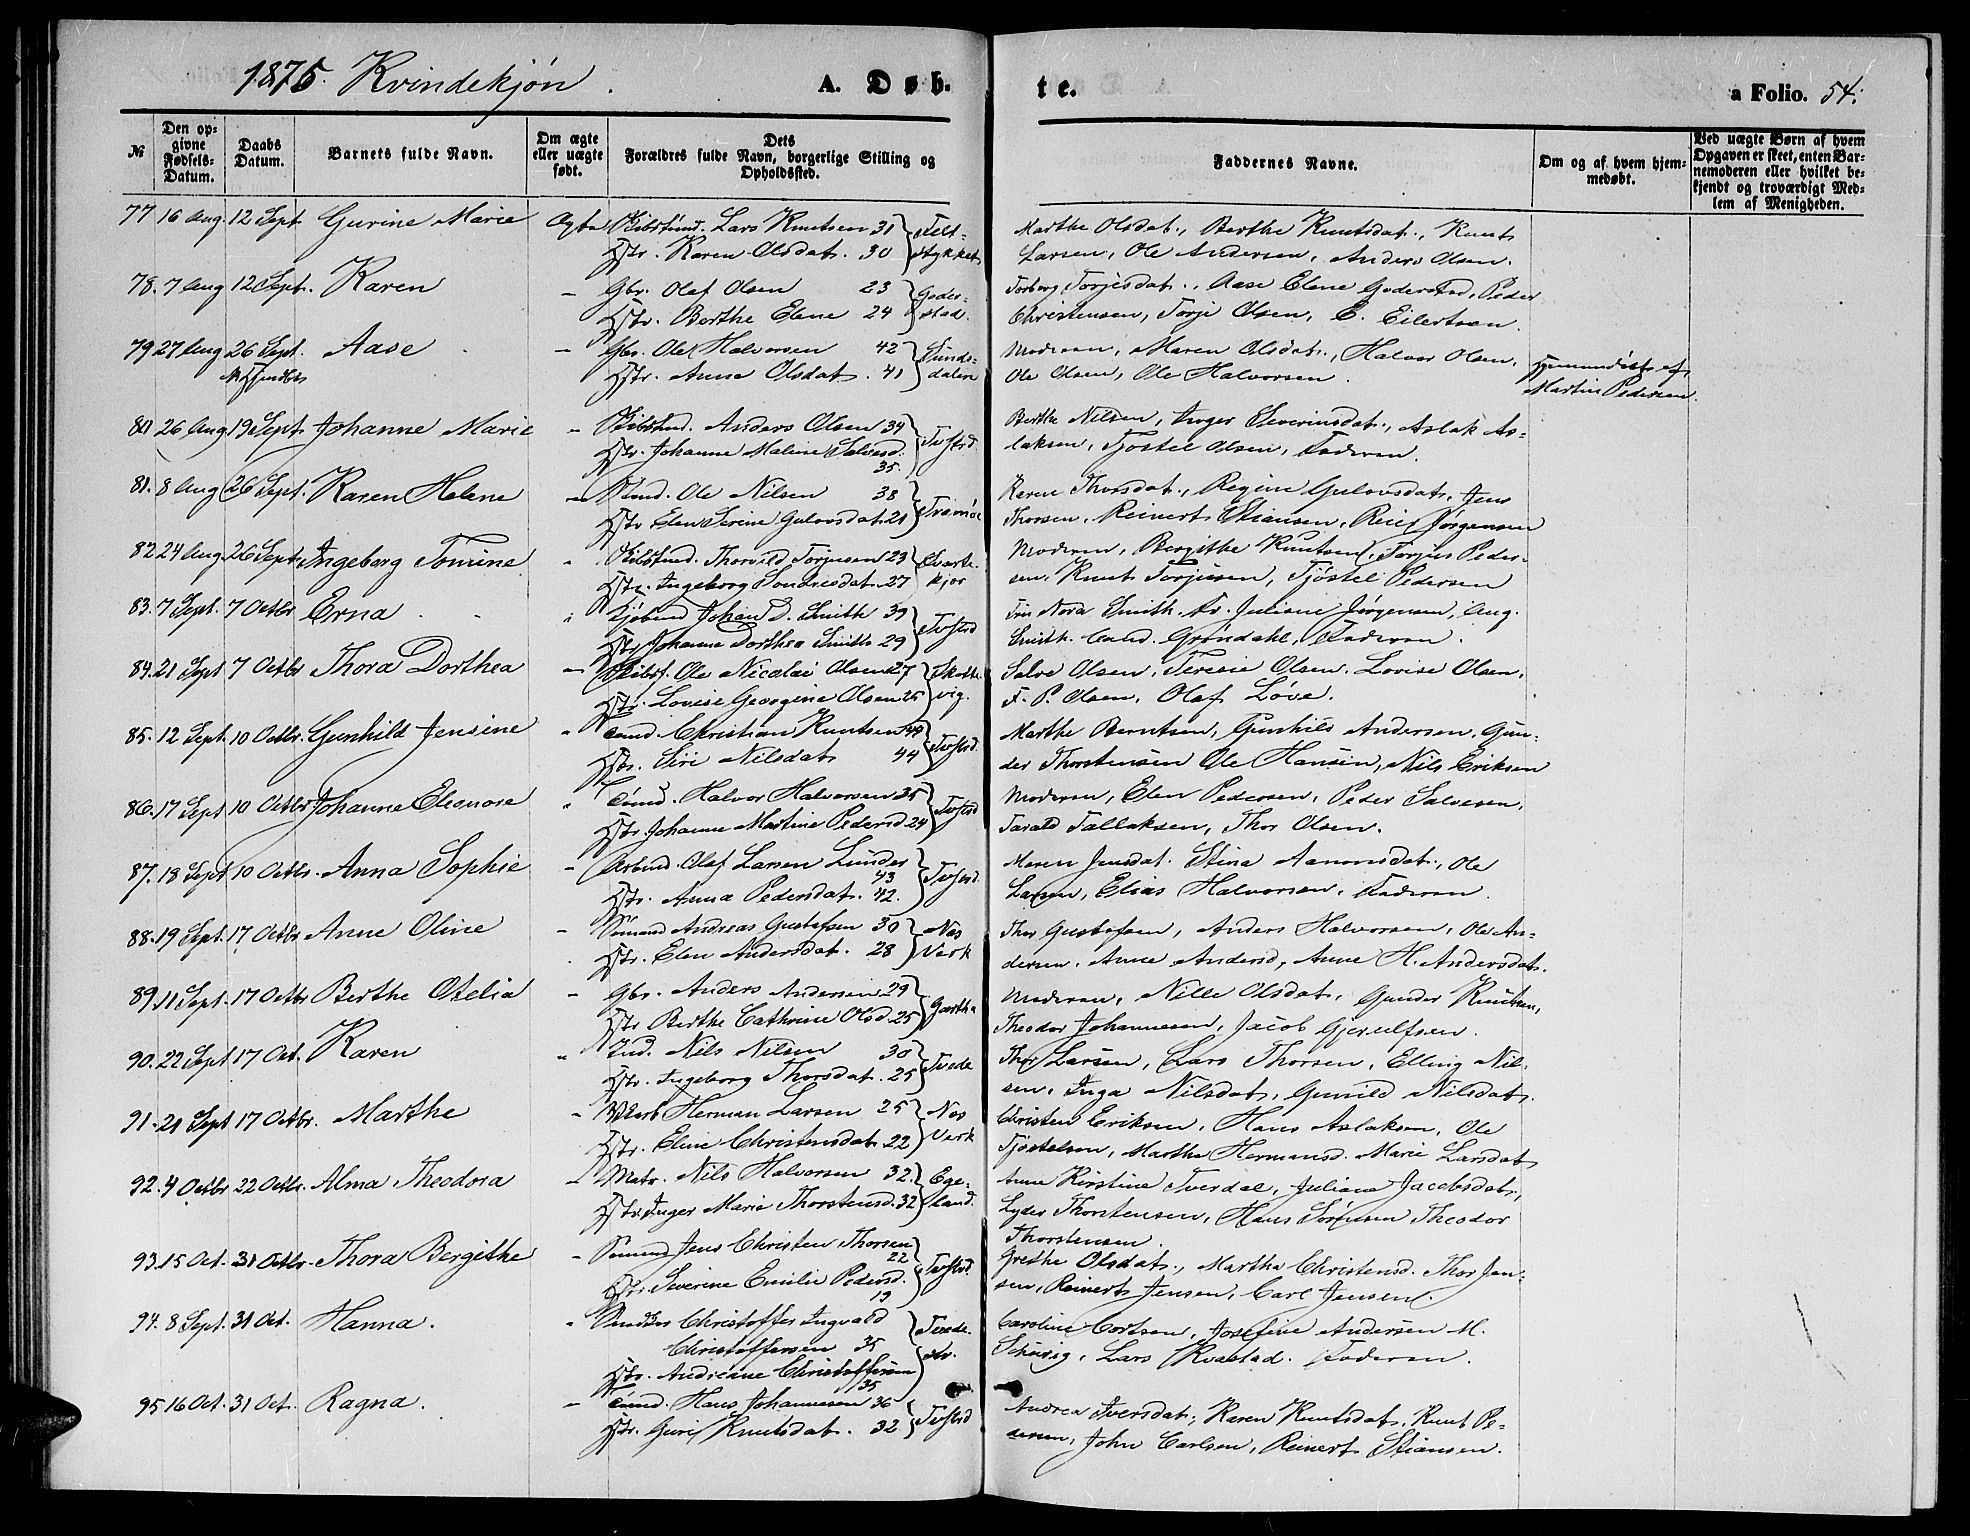 1875. Kvindekjøn. A. Døb-
te. a Folio. 54.
№ Den opgivne Fødsels-Datum. Daabs Datum. Barnets fulde Navn. Om ægte eller uægte født. Dets Forældres fulde Navn, borgerlige Stilling og Opholdssted.
Faddernes Navne. Om og af hvem hjemmedøbt. Ved uægte Børn af hvem Opgaven er skeet, enten Barnemoderen eller hvilket bekjendt og troværdigt Medlem af Menigheden.
77 16 Aug. 12 Sept. Gurine Marie Ægte Lars Knutsen 31
Hstr. Karen Olsdat. 30
Marthe Olsdat., Berthe Knutsdat., Knut
Larsen, Ole Andersen, Anders Olsen.
78. 7 Aug 12 Sept. Karen - Gbr. Olaf Olsen 23 Goder-
Hstr. Berthe Elene 24 stad.
Torborg Torjesdat., Aase Elene Goderstad, Peder
Christensen, Torje Olsen, E. Eilertsen.
79 27 Aug 26 Sept. Aase - Gbr. Ole Halvorsen 42 Sunds-
Hstr. Anne Olsdat. 41 dalen
Moderen, Maren Olsdat., Halvor Olsen,
Ole Olsen, Ole Halvorsen.
Hjemmedøbt af
Martin Pedersen.
80 26 Aug 19 Sept. Johanne Marie - Anders Olsen 34
Hstr. Johanne Maline Salvesd. 35 Tvstrd
Berthe Nilsen, Inger Severinsdat., Aslak As-
laksen, Tjøstel Olsen, Faderen.
81. 8 Aug 26 Sept. Karen Helene - Sømd. Ole Nilsen 38
Hstr. Elen Serine Gulovsdat. 21 Tromøe
Karen Thorsdat., Regine Gulovsdat., Jens
Thorsen, Reinert Stiansen, Reier Jørgensen
82 24 Aug 26 Sept. Ingeborg Tomine - Thorvild Torjusen 23 Svarte-
Hstr. Ingeborg Sondresdat. 27 kjær
Moderen, Bergithe Knutsen, Torjus Peder-
sen, Knut Torjusen, Tjøstel Pedersen
83. 7 Sept. 7 Octbr. Erna - Kjøbmd Johan D. Smith 39
Hstr. Johanne Dorthea Smith 29 Tvstrd
Frk Nora Smith. Fr. Juliane Jørgensen, Aug.
Smith. Cand. Grøndahl, Faderen.
84. 21 Sept 7 Octbr Thora Dorthea - Skibsf. Ole Nicolai Olsen 27 Skotte-
Hstr. Lovise Georgine Olsen 25 vig.
Salve Olsen, Teresie Olsen, Lovise Olsen,
F. P. Olsen, Olaf Løve.
85. 12 Sept. 10 Octbr. Gunhild Jensine - Sømd. Christian Knutsen 44
Hstr. Siri Nilsdat. 44 Tvstrd.
Marthe Berntsen, Gunhild Andersen, Gun-
der Thorstensen Ole Hansen, Nils Eriksen
86. 17 Sept 10 Octbr Johanne Eleonore - Sømd. Halvor Halvorsen 35
Hstr. Johanne Martine Pedersd 24 Tvstrd
Moderen, Elen Pedersen, Peder Salvesen,
Tarald Tallaksen, Thor Olsen.
87. 18 Sept 10 Octbr. Anna Sophie - Arbmd. Olaf Larsen Lunder 43
Hstr. Anna Pedersdat. 42. Tvstrd.
Maren Jensdat. Stina Aanonsdat., Ole
Larsen, Elias Halvorsen, Faderen.
88. 19 Sept. 17 Octbr Anne Oline - Sømand Andreas Gustafsen 30 Nes
Hstr. Elen Andersdat. 28 Verk
Thor Gustafsen, Anders Halvorsen, Ole An-
dersen. Anne Andersd, Anne H. Andersdat.
89. 11 Sept. 17 Octbr. Berthe Otelia - Gbr. Anders Andersen 29
Hstr Berthe Cathrine Olsd. 25 Garthe
Moderen, Nille Olsdat., Gunder Knutsen,
Theodor Johannesen, Jacob Gjerulfsen.
90. 22 Sept 17 Oct. Karen - Ind. Nils Nilsen 30
Hstr. Ingeborg Thorsdat. 25 Tvede
Thor Larsen, Lars Thorsen, Elling Nil-
sen, Inga Nilsdat., Gunild Nilsdat.
91. 21 Sept 17 Octbr. Marthe - Herman Larsen 25 Nes
Hstr. Eline Christensdat. 22 Verk
Christen Eriksen, Hans Aslaksen, Ole
Tjøstelsen, Marthe Hermansd. Marie Larsdat.
92. 4 Octbr. 22 Octbr. Alma Theodora - Matr. Nils Halvorsen 32. Ege-
Hstr. Inger Marie Thorstensd. 32 land.
Anne Kirstine Tverdal, Juliane Jacobsdat.,
Lyder Thorstensen, Hans Sørensen Theodor
Thorstensen.
93. 15 Oct. 31 Octbr. Thora Bergithe - Sømand Jens Christen Thorsen 22
Hstr. Severine Emilie Pedersd. 19 Tvstrd.
Grethe Olsdat., Marthe Christensd. Thor Jen-
sen, Reinert Jensen, Carl Jensen.
94. 8 Sept. 31 Oct. Hanna. - Christoffer Ingvald
Christoffersen 35
Hstr. Andreane Christoffersen 35
Caroline Cortsen, Josefine Andersen M.
Schevig, Lars Kvastad. Faderen.
95 16 Oct. 31 Oct. Ragna. - Sømd. Hans Johannesen 36
Hstr. Guri Knutsdat. 32 Tvstrd
Andrea Iversdat., Karen Knutsdat. Knut Pe-
dersen, John Carlsen, Reinert Stiansen.